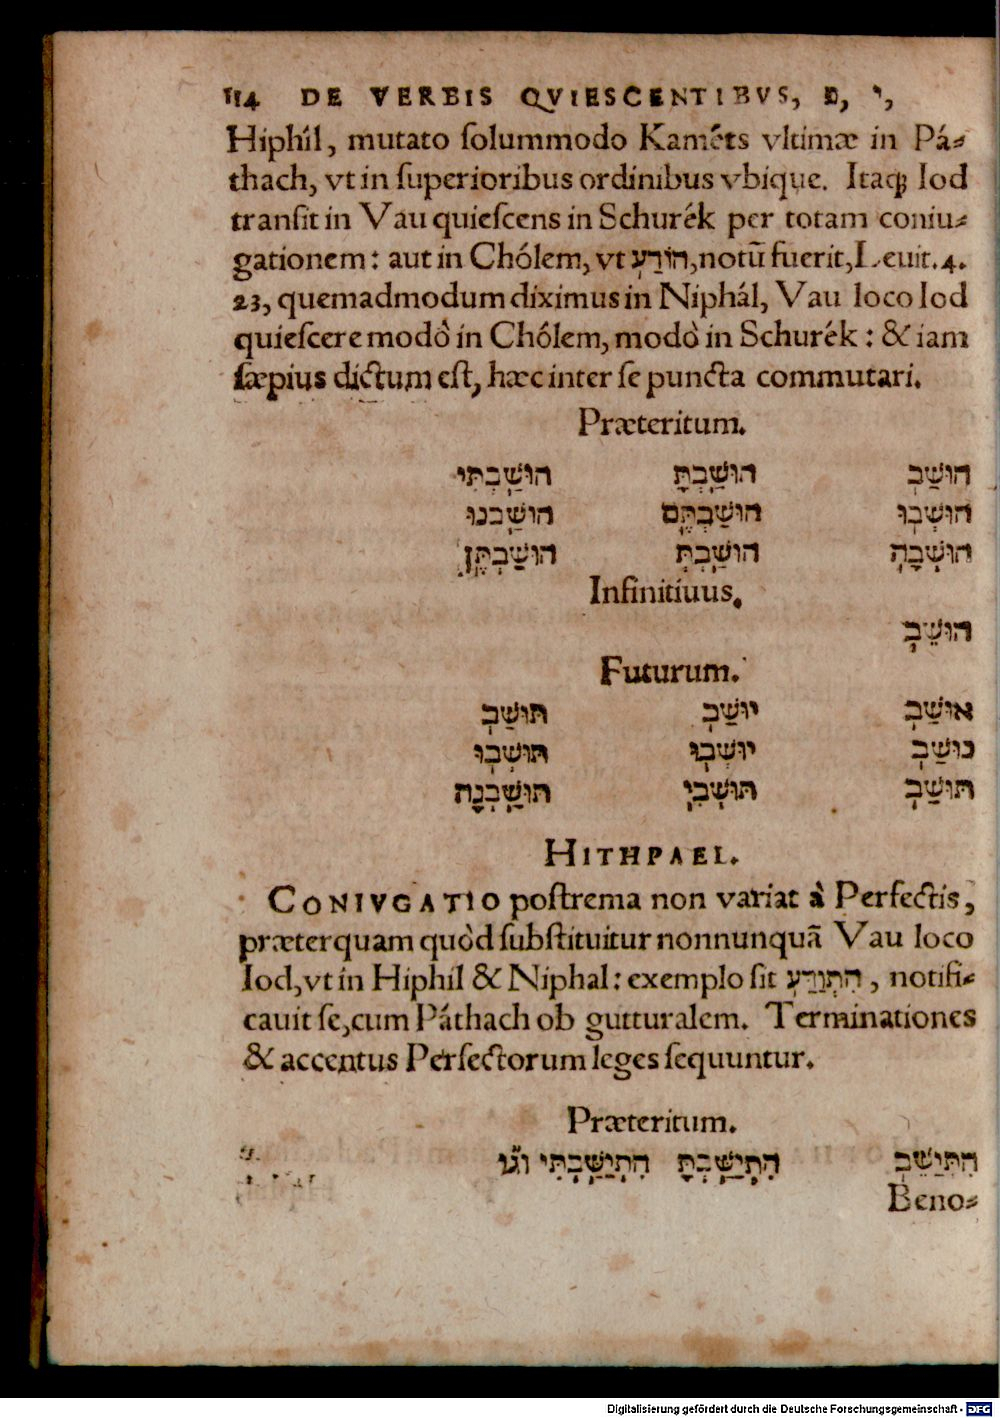 114 DE VERBIS QVIESCENTIBVS, פ, י,
Hiphíl, mutato ſolummodo Kaméts vltimæ in Pá-
thach, vt in ſuperioribus ordinibus vbique. Itaqꝫ Iod
tranſit in Vau quieſcens in Schurék per totam coniu-
gationem: aut in Chólem, vt הוֹדַע, notũ fuerit, Leuit. 4.
23, quemadmodum diximus in Niphál, Vau loco Iod
quieſcere modò in Chólem, modò in Schurék: & iam
ſæpius dictum eſt, hæc inter ſe puncta commutari.
Præteritum.
הוּשַׁב הוּשַׁבְתָּ הוּשַׁבְתִּי
הוּשְׁבוּ הוּשַׁבְתֶּם הוּשַׁבנוּ
הוּשְׁבָה הוּשַׁבְתְּ הוּשַׁבְתֶּן
Infinitiuus.
הוּשֵׁב
Futurum.
אוּשַׁב יוּשַׁב תּוּשַׁב
נוּשַׁב יוּשְׁבוּ תּוּשְׁבוּ
תּוּשַׁב תּוּשְׁבִי תּוּשַׁבְנָה
HITHPAEL.
CONIVGATIO poſtrema non variat à Perfectis,
præterquam quòd ſubſtituitur nonnunquã Vau loco
Iod, vt in Hiphil & Niphal: exemplo ſit הִתְוַדַּע, notifi-
cauit ſe, cum Páthach ob gutturalem. Terminationes
& accentus Perfectorum leges ſequuntur.
Præteritum.
הִתְיַשֵּׁב הִתְיַשַּׁבְתָּ הִתְיַשַּׁבְתִּי וגו
Beno-
Digitalisierung gefördert durch die Deutsche Forschungsgemeinschaft - DFG